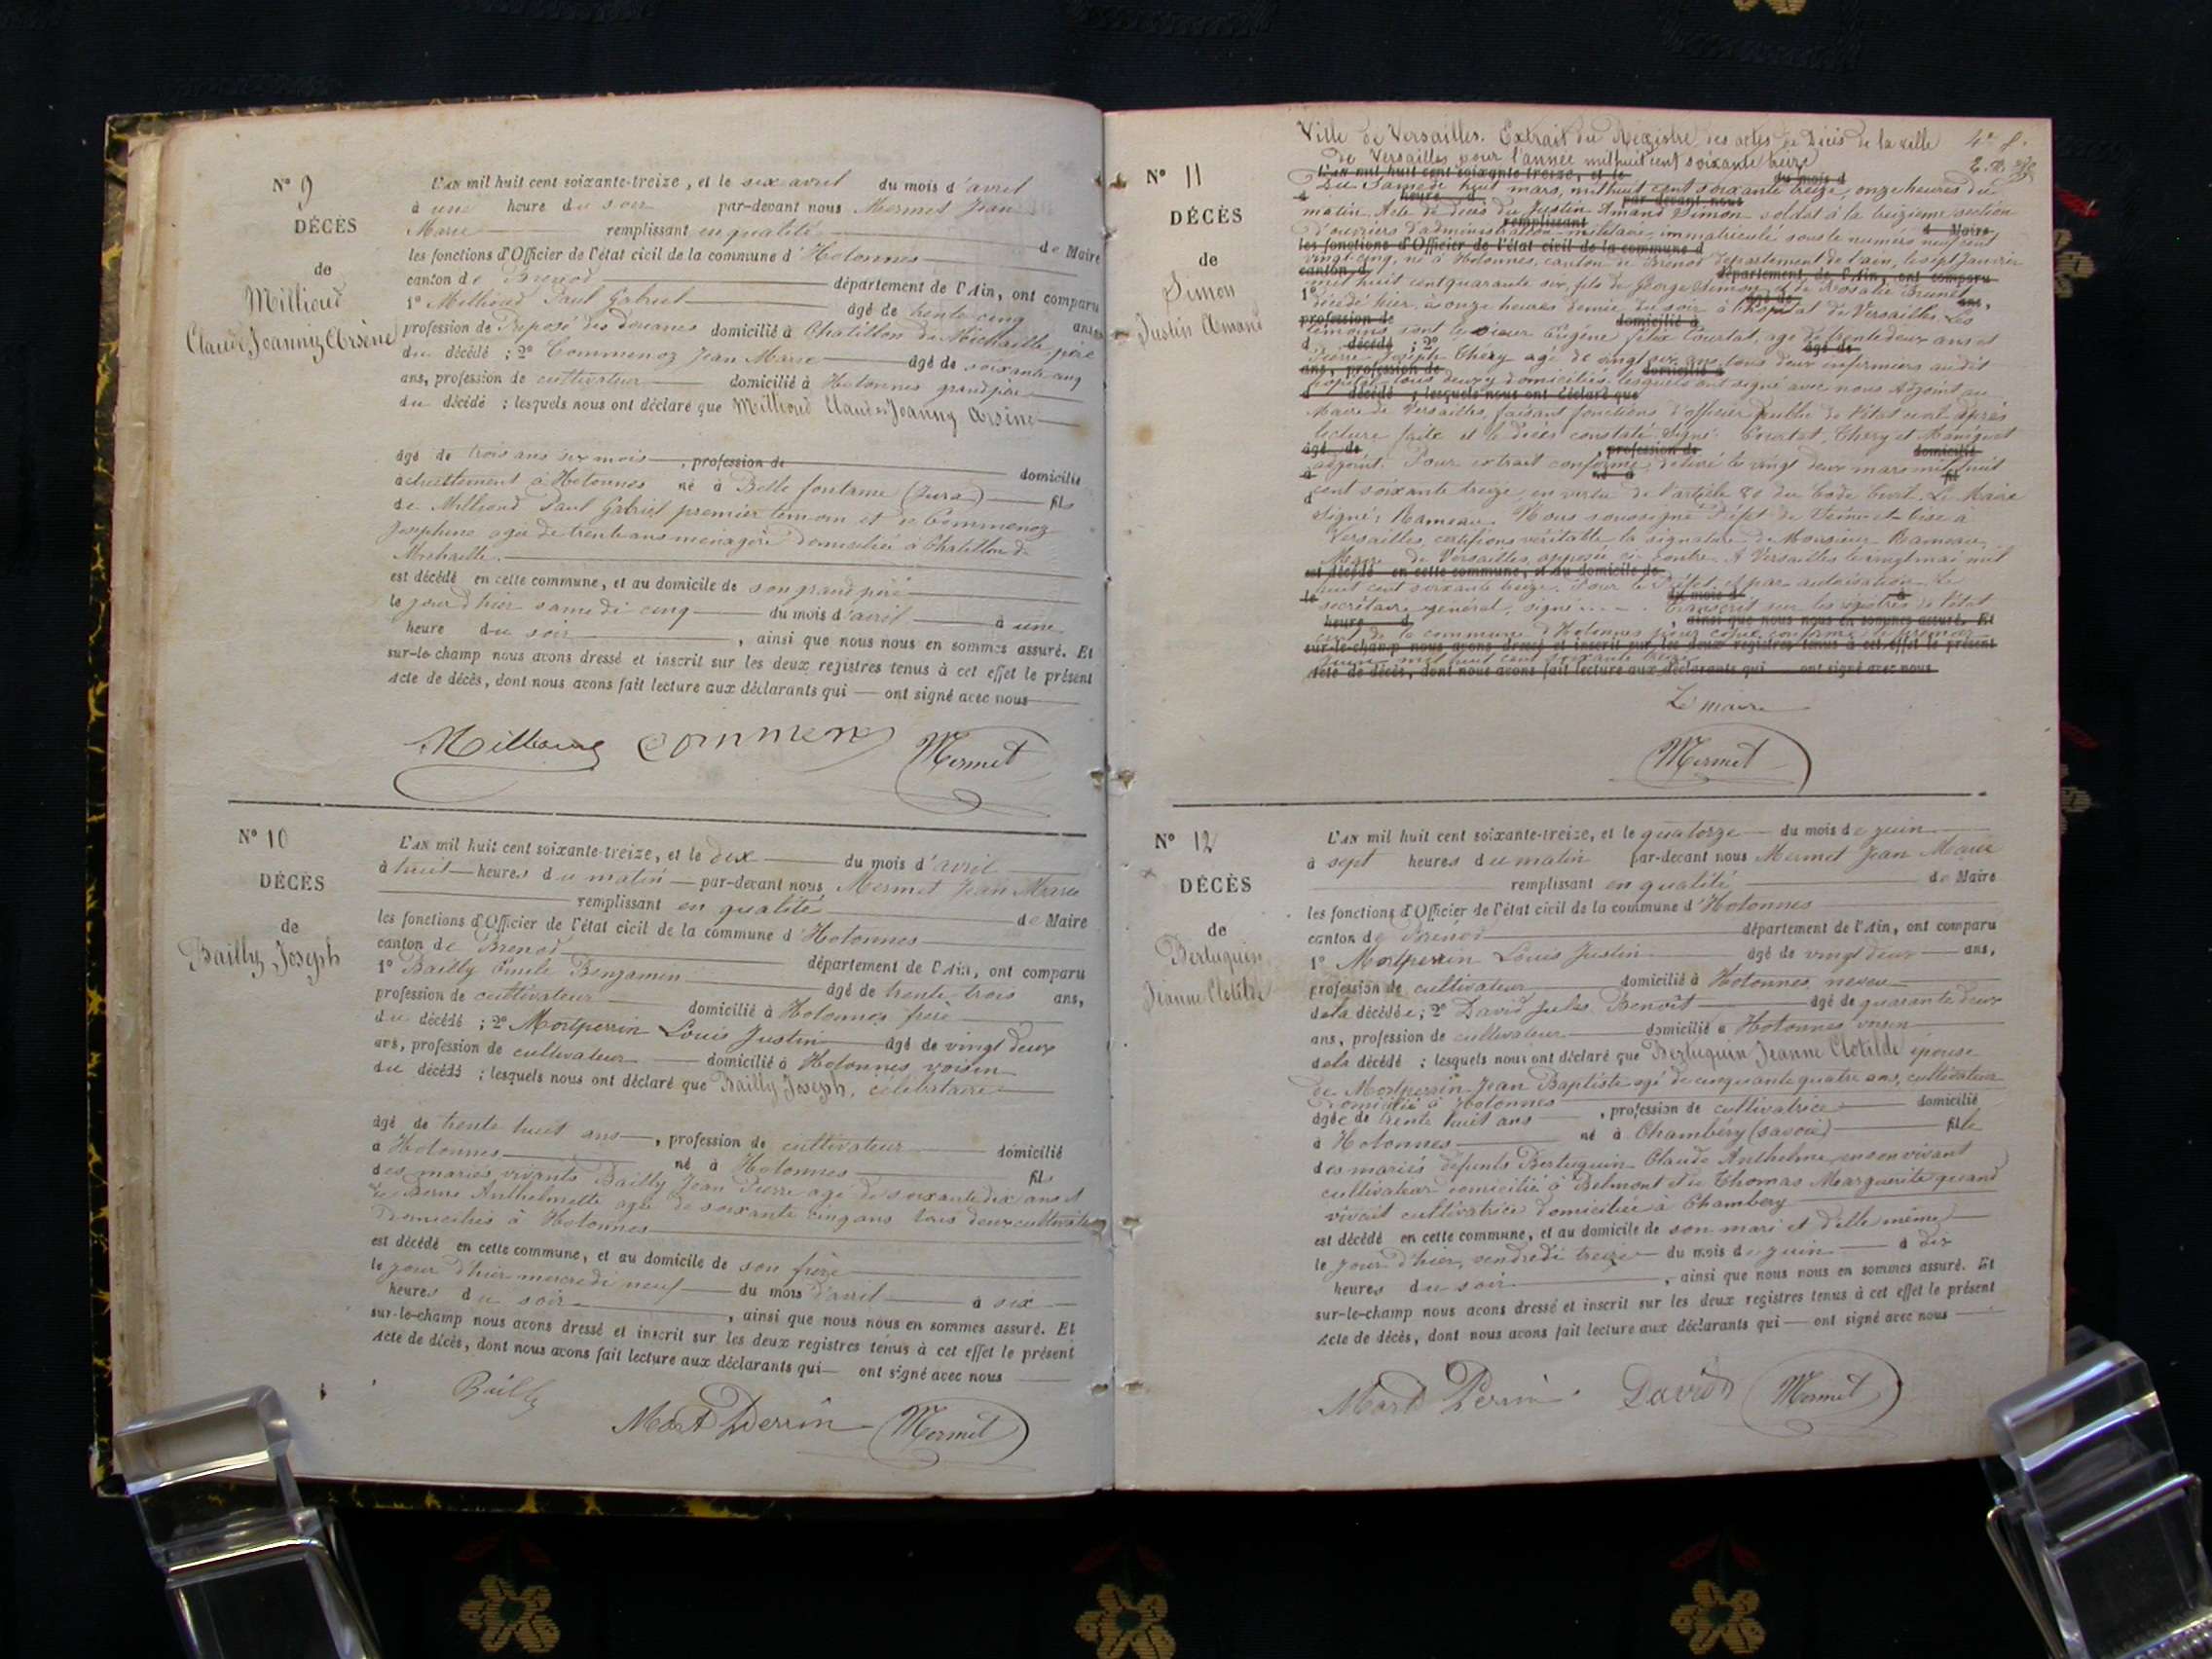 Nº 9
DÉCÈS
de
Millioud
Claude Joanniz Arsène
L'AN mil huit cent soixante-treize, et le six avril du mois d'avril
à une heure du soir par-devant nous Mermet Jean
Marie remplissant en qualité de Maire
les fonctions d'Officier de l'état civil de la commune d'Hotonnes
canton de Brenod département de l'Ain, ont comparu
1º Millioud Paul Gabriel âgé de trente cinq ans
profession de Préposé des douanes domicilié à Chatillon de Michaille père
du décédé ; 2º Commenoz Jean Marie âgé de soixante cinq
ans, profession de cultivateur domicilié à Hotonnes grand père
du décédé ; lesquels nous ont déclaré que Millioud Claude Joanny Arsène
âgé de trois ans six mois , profession de domicilié
actuellement à Hotonnes né à Belle fontaine (Jura) fils
de Millioud Paul Gabriel premier témoin et de Commenoz
Josephine agée de trente ans ménagère domiciliée à Chatillon de
Michaille
est décédé en cette commune, et au domicile de son grand père
le jour d'hier samedi cinq du mois d'avril à une
heure du soir , ainsi que nous nous en sommes assuré. Et
sur-le-champ nous avons dressé et inscrit sur les deux registres tenus à cet effet le présent
Acte de décès, dont nous avons fait lecture aux déclarants qui ont signé avec nous
Millioud Commenoz Mermet
Nº 10
DÉCÈS
de
Bailly Joseph
L'AN mil huit cent soixante-treize, et le dix du mois d'avril
à huit heures du matin par-devant nous Mermet Jean Marie
remplissant en qualité de Maire
les fonctions d'Officier de l'état civil de la commune d'Hotonnes
canton de Brenod département de l'Ain, ont comparu
1º Bailly Emile Benjamin âgé de trente trois ans,
profession de cultivateur domicilié à Hotonnes frère
du décédé ; 2º Mortperrin Louis Justin âgé de vingt deux
ans, profession de cultivateur domicilié à Hotonnes voisin
du décédé ; lesquels nous ont déclaré que Bailly Joseph, célibataire
âgé de trente huit ans , profession de cultivateur domicilié
à Hotonnes né à Hotonnes fils
des mariés vivants Bailly Jean Pierre agé de soixante dix ans et
de Berne Anthelmette agée de soixante cinq ans tous deux cultivateurs
domiciliés à Hotonnes
est décédé en cette commune, et au domicile de son frère
le jour d'hier mercredi neuf du mois d'avril à six
heures du soir , ainsi que nous nous en sommes assuré. Et
sur-le-champ nous avons dressé et inscrit sur les deux registres tenus à cet effet le présent
Acte de décès, dont nous avons fait lecture aux déclarants qui ont signé avec nous
Bailly
Mort Perrin Mermet
Nº 11
DÉCÈS
de
Simon
Justin Amand
Ville de Versailles. Extrait du Registre des actes de Décès de la ville
de Versailles pour l'année mil huit cent soixante treize
L'AN mil huit cent soixante-treize, et le du mois d
Du Samedi huit mars, mil huit cent soixante treize, onze heures du
à heure d par-devant nous
matin. Acte de décès du Justin Amand Simon soldat à la treizième section
remplissant d Maire
d'ouvriers d'administration militaire, immatriculé sous le numéro neuf cent
les fonctions d'Officier de l'état civil de la commune d
vingt cinq, né à Hotonnes, canton de Brenod département de l'ain, le sept Janvier
canton d département de l'Ain, ont comparu
mil huit cent quarante six, fils de George Simon et de Rosalie Brunet
1º âgé de ans,
décédé hier, à onze heures demie du soir à l'hopital de Versailles. Les
profession de domicilié à
témoins sont le sieur Eugène félix Courtat, agé de trente deux ans et
d décédé ; 2º âgé de
Pierre Joseph Théry agé de vingt six ans, tous deux infirmiers audit
ans, profession de domicilié à
hopital, tous deux y domiciliés. lesquels ont signé avec nous Adjoint au
d décédé ; lesquels nous ont déclaré que
Maire de Versailles, faisant fonctions d'officier public de l'état civil après
lecture faite et le décès constaté. Signé: Courtat, Théry et
âgé de , profession de domicilié
adjoint. Pour extrait conforme délivré le vingt deux mars mil huit
à né à fil
cent soixante treize, en vertu de l'article 80 du Code Civil. Le Maire
d
Signé: Rameau. Nous soussigné Préfet de Seine-et-Oise à
Versailles, certifions véritable la signature de Monsieur Rameau
Maire de Versailles apposée ci-contre. A Versailles le vingt mai mil
est décédé en cette commune, et au domicile de
huit cent soixante treize. Pour le Préfet et par autorisation. Le
le du mois d à
secrétaire général, signé . . . . Transcrit sur les registres de l'état
heure d , ainsi que nous nous en sommes assuré. Et
civil de la commune d'Hotonnes pour copie conforme le
sur-le-champ nous avons dressé et inscrit sur les deux registres tenus à cet effet le présent
juin mil huit cent soixante treize
Acte de décès, dont nous avons fait lecture aux déclarants qui ont signé avec nous
Le maire
Mermet
Nº 12
DÉCÈS
de
Bertuquin
Jeanne Clotilde
L'AN mil huit cent soixante-treize, et le quatorze du mois de juin
à sept heures du matin par-devant nous Mermet Jean Marie
remplissant en qualité de Maire
les fonctions d'Officier de l'état civil de la commune d'Hotonnes
canton de Brenod département de l'Ain, ont comparu
1º Mortperrin Louis Justin âgé de vingt deux ans,
profession de cultivateur domicilié à Hotonnes, neveu
de la décédée ; 2º David Jules Benoît âgé de quarante deux
ans, profession de cultivateur domicilié à Hotonnes voisin
de la décédé ; lesquels nous ont déclaré que Bertuquin Jeanne Clotilde épouse
de Mortperrin Jean Baptiste agé de cinquante quatre ans, cultivateur
domicilié à Hotonnes
âgée de trente huit ans , profession de cultivatrice domicilié
à Hotonnes né à Chambéry (savoie) fille
des mariés défunts Bertuquin Claude Anthelme, en son vivant
cultivateur domicilié à Belmont et de Thomas Marguerite quand
vivait cultivatrice domiciliée à Chambery
est décédé en cette commune, et au domicile de son mari et d'elle même
le jour d'hier, vendredi treize du mois de juin à dix
heures du soir , ainsi que nous nous en sommes assuré. Et
sur-le-champ nous avons dressé et inscrit sur les deux registres tenus à cet effet le présent
Acte de décès, dont nous avons fait lecture aux déclarants qui ont signé avec nous
Mort Perrin David Mermet